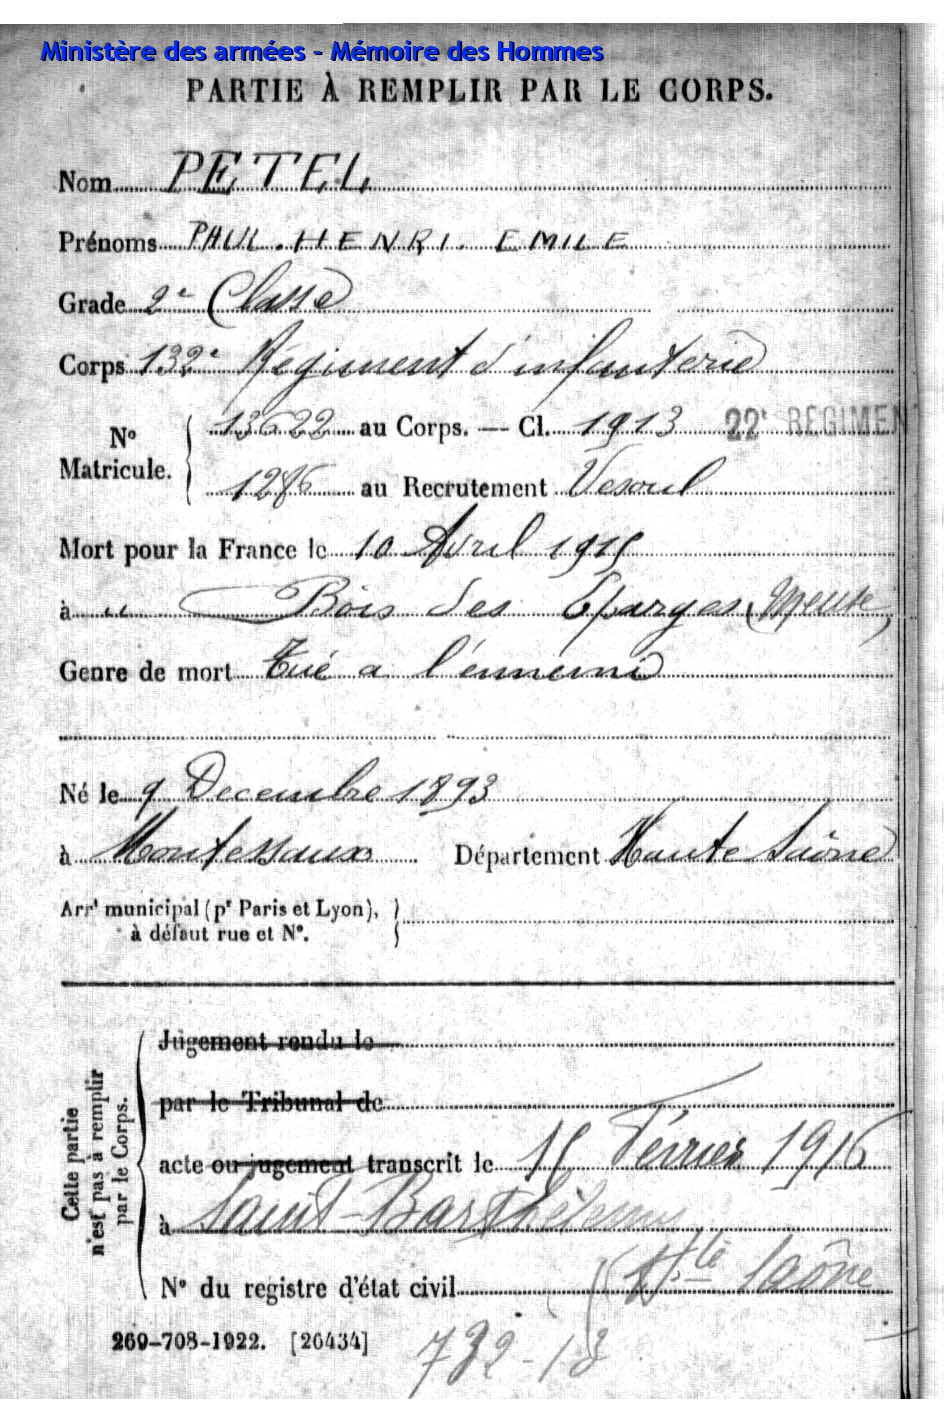 Ministère des armées - Mémoire des Hommes
PARTIE À REMPLIR PAR LE CORPS.
Nom PETEL
Prénoms PAUL. HENRI. EMILE
Grade 2e Classe
Corps 132e Régiment d'infanterie
N° Matricule. 13622 au Corps. — Cl. 1913 22e REGIMEN
1286 au Recrutement Vesoul
Mort pour la France le 10 Avril 1915
à Bois des Eparges (Meuse)
Genre de mort Tué a l'ennemi
Né le 9 Decembre 1893
à Montessaux Département Haute Saône
Arrt municipal (pr Paris et Lyon),
à défaut rue et N°.
Jugement rendu le
par le Tribunal de
acte ou jugement transcrit le 15 Février 1916
à Saint-Barthélemy
N° du registre d'état civil (Hte Saône
Cette partie
n'est pas à remplir
par le Corps.
269-708-1922. [26434]
732-13